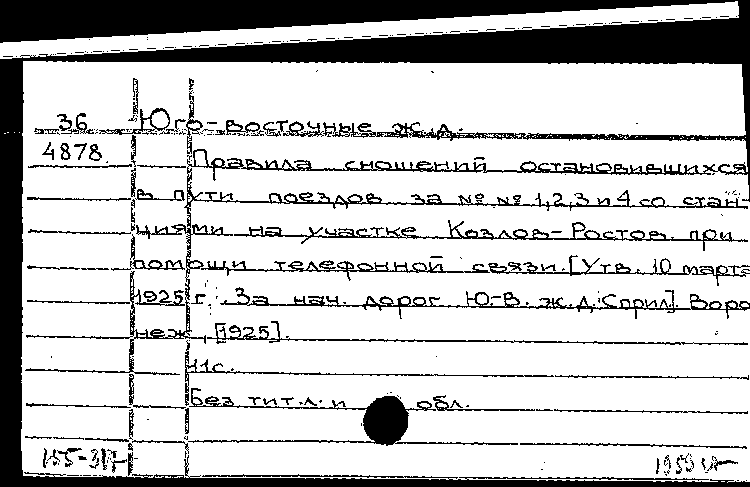 36 Юго-восточные ж.д.
4878 Правила сношений остановившихся
в пути поездов за №№ 1,2,3 и 4 со стан-
циями на участке Козлов-Ростов при
помощи телефонной связи. [Утв. 10 марта
1925 г. За нач. дорог Ю-В. ж.д. Сприл]. Воро
неж, [1925].
11с.
Без тит.л. и обл.